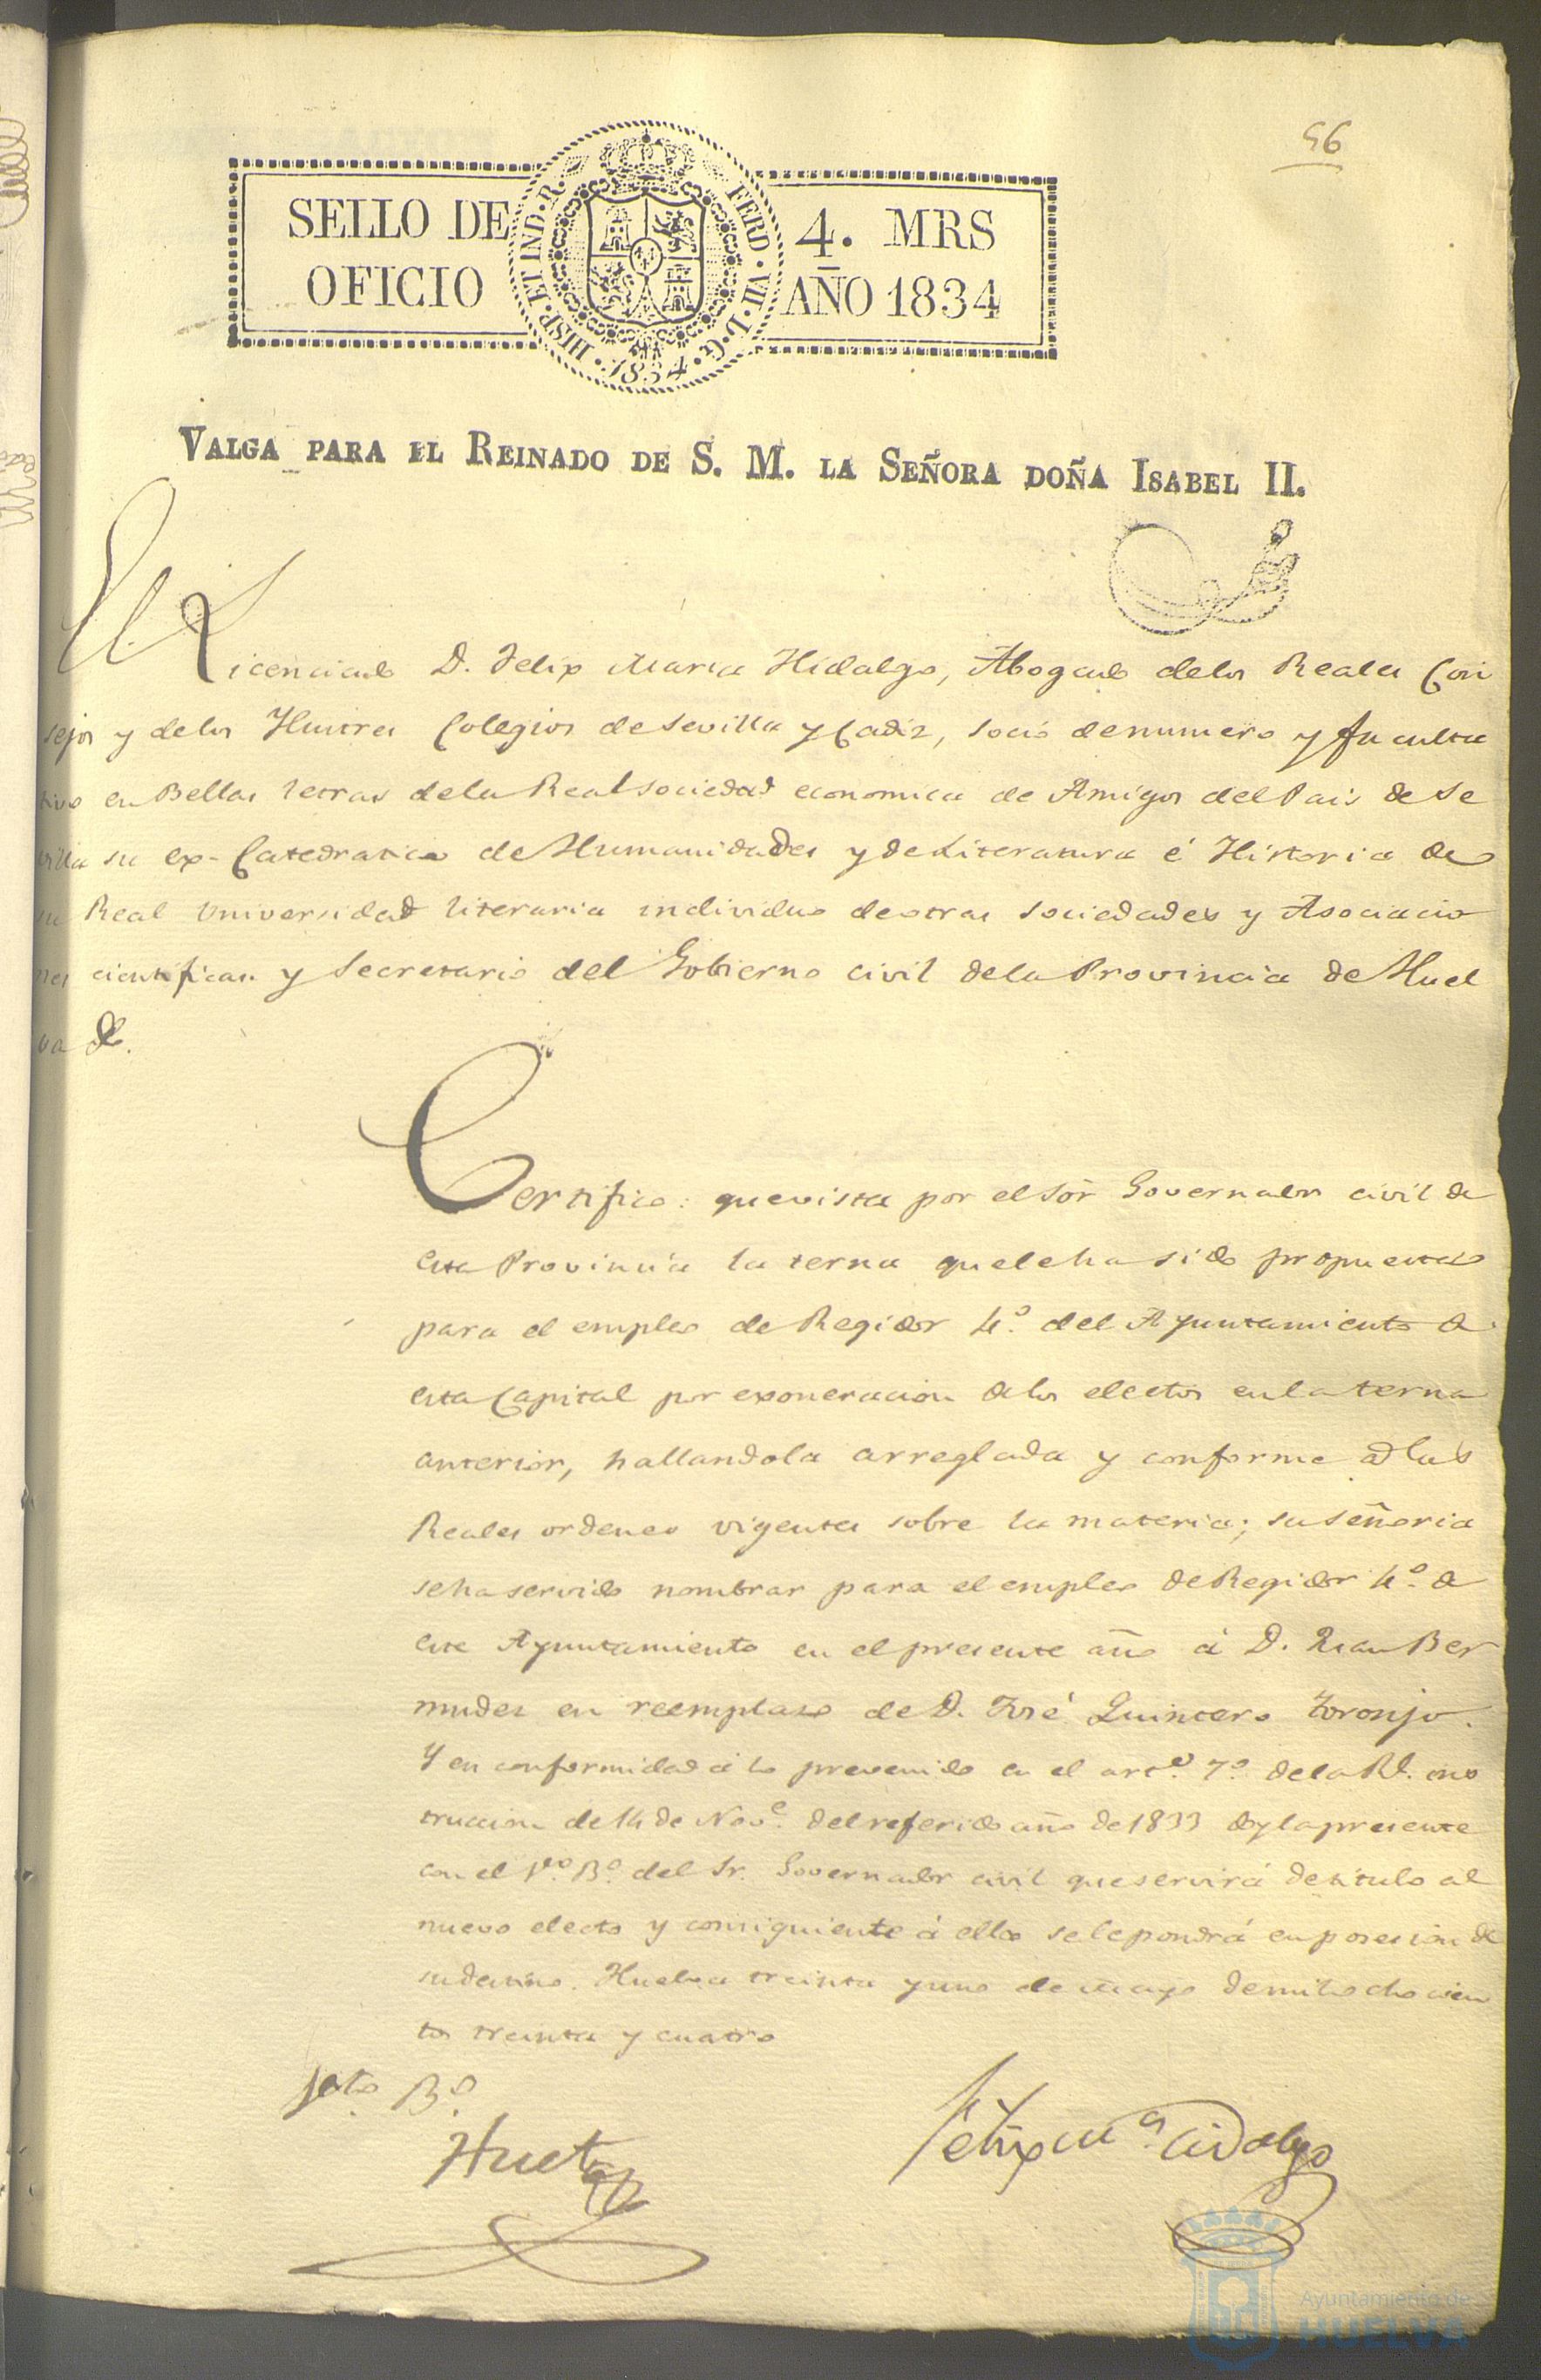 56
SELLO DE OFICIO
4. MRS AÑO 1834
HISP. ET IND. R. FERD. VII. D. G. 1834.
VALGA PARA EL REINADO DE S. M. LA SEÑORA DOÑA ISABEL II.
El Licenciado D. Felix Maria Hidalgo, Abogado delos Reales Con
sejos y delos Ilustres Colegios de Sevilla y Cadiz, socio denumero y faculta
tivo en Bellas letras dela Real sociedad economica de Amigos del Pais de Se
villa su ex-Catedratico de Humanidades y de Literatura é Historia de
su Real Universidad literaria individuo deotras sociedades y Asociacio
nes cientificas y Secretario del Gobierno civil dela Provincia de Huel
va &.
Certifico: quevista por elSõr Governador civil de
esta Provincia la terna quelehasido propuesta
para el empleo de Regidor 4.º del Ayuntamiento de
esta Capital por exoneracion delos electos enlaterna
anterior, hallandola arreglada y conforme a las
Reales ordenes vigentes sobre la materia; suseñoria
sehaservido nombrar para el empleo deRegidor 4.º de
este Ayuntamiento en elpresente año á D. Juan Ber
mudes en reemplaso de D. José Quintero Toronjo.
Y en conformidad á lo prevenido en el art.º 7.º dela Rl. ins
truccion de 14 de Nov.e delreferido año de 1833 doy lapresente
con el V.º B.º del Sr. Governador civil queservirá detitulo al
nuevo electo y consiguiente á ello selepondrá enposesion de
sudestino. Huelva treinta yuno de Mayo demilochocien
tos treinta y cuatro
Visto B.º
Huet
Felix M.a Hidalgo
Ayuntamiento de
HUELVA